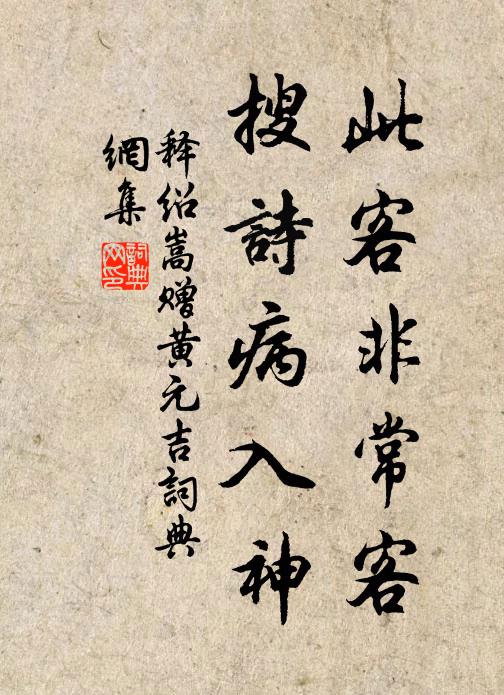 此客非常客
搜詩病入神
释绍嵩赠黄元吉詞典
網集
詞典網印